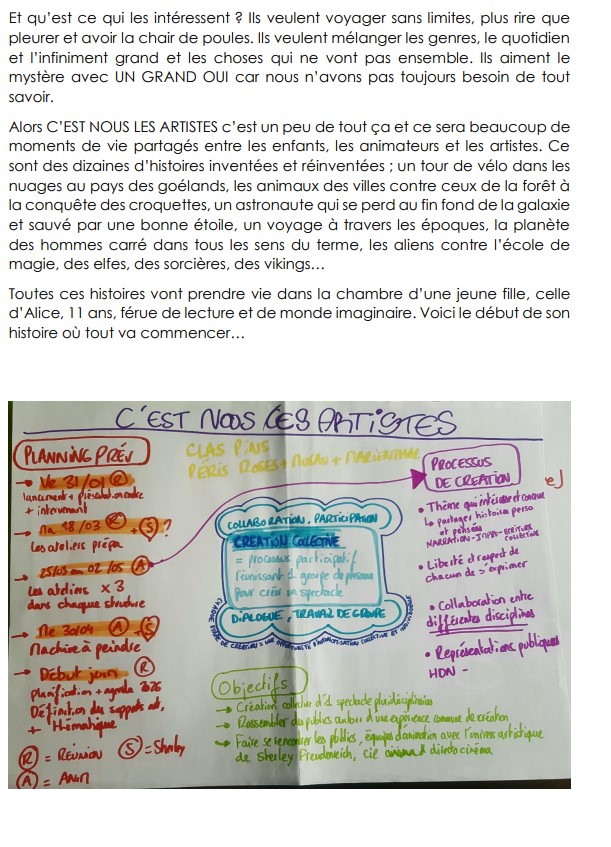 Et qu’est ce qui les intéressent ? Ils veulent voyager sans limites, plus rire que
pleurer et avoir la chair de poules. Ils veulent mélanger les genres, le quotidien
et l’infiniment grand et les choses qui ne vont pas ensemble. Ils aiment le
mystère avec UN GRAND OUI car nous n’avons pas toujours besoin de tout
savoir.
Alors C’EST NOUS LES ARTISTES c’est un peu de tout ça et ce sera beaucoup de
moments de vie partagés entre les enfants, les animateurs et les artistes. Ce
sont des dizaines d’histoires inventées et réinventées ; un tour de vélo dans les
nuages au pays des goélands, les animaux des villes contre ceux de la forêt à
la conquête des croquettes, un astronaute qui se perd au fin fond de la galaxie
et sauvé par une bonne étoile, un voyage à travers les époques, la planète
des hommes carré dans tous les sens du terme, les aliens contre l’école de
magie, des elfes, des sorcières, des vikings…
Toutes ces histoires vont prendre vie dans la chambre d’une jeune fille, celle
d’Alice, 11 ans, férue de lecture et de monde imaginaire. Voici le début de son
histoire où tout va commencer…
C'EST NOUS LES ARTISTES
PLANNING PRÉV
Ve 31/01 (R)
lancement + présentation cadre
+ intervenant
Ma 18/03 (R) + (S) ?
Les ateliers prépa
25/03 au 02/05 (A)
Les ateliers x 3
dans chaque structure
Me 30/04 (A) + (S)
Machine à peindre
Début juin (R)
planification + agenda 2026
Définition des supports
+ thématique
(R) = RÉUNION (S) = Sherley
(A) = ANIM
CLAS PINS
PÉRIS ROSES + MUSAU + MARIENTHAL
COLLABORATION, PARTICIPATION
CREATION COLLECTIVE
= processus participatif
réunissant 1 groupe de personnes
pour créer un spectacle
DIALOGUE, TRAVAIL DE GROUPE
Objectifs
Création collective d'1 spectacle pluridisciplinaire
Rassembler des publics autour d'une expérience commune de création
Faire se rencontrer les publics, équipes d'animation avec l'univers artistique
de Sherley Freudenreich, cie dinédo cinéma
PROCESSUS
DE CREATION
• Thème qui intéresse et concerne
↳ partager histoire perso
et pensées
NARRATION - IMPRO - ECRITURE
COLLECTIVE
• Liberté et respect de
chacun de s'exprimer
• Collaboration entre
différentes disciplines
• Représentations publiques
HDN -